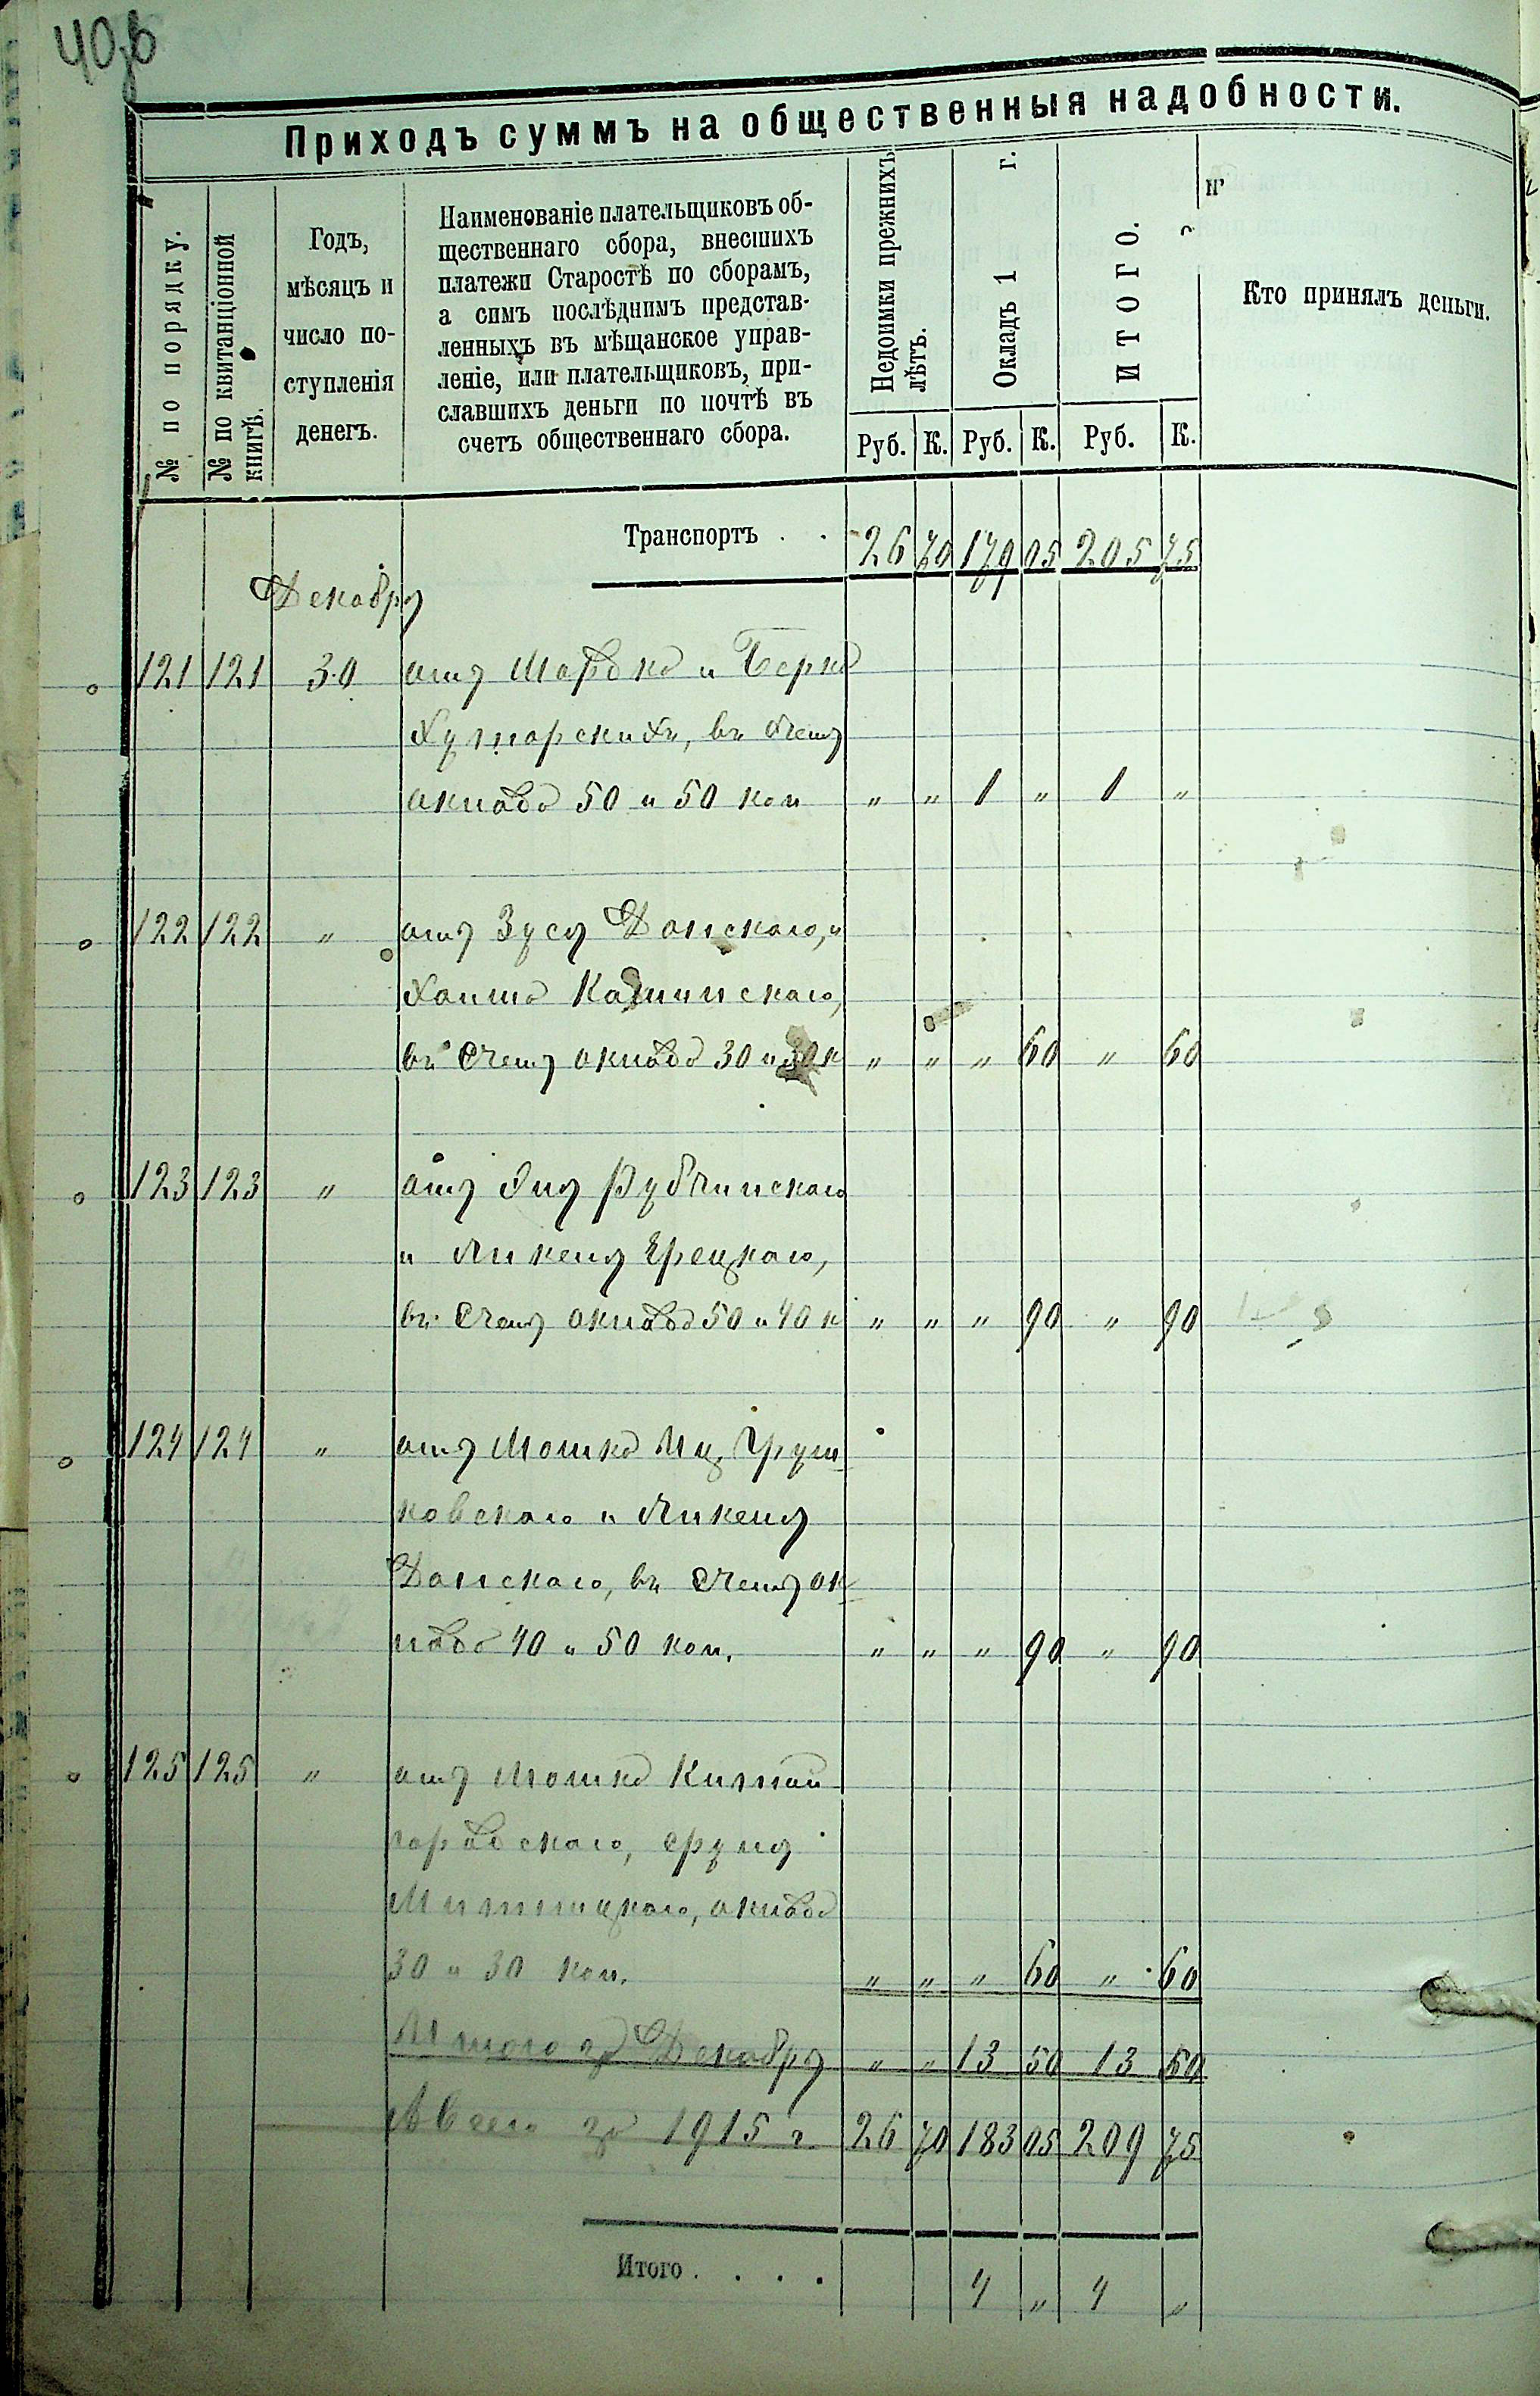 40об
Приходъ суммъ на общественныя надобности.
№ по порядку.
№ по квитанціонной книгѣ.
Годъ,
мѣсяцъ и
число по-
ступленія
денегъ.
Наименованіе плательщиковъ об-
щественнаго сбора, внесшихъ
платежи Старостѣ по сборамъ,
а симъ послѣднимъ представ-
ленныхъ въ мѣщанское управ-
леніе, или плательщиковъ, при-
славшихъ деньги по почтѣ въ
счетъ общественнаго сбора.
Недоимки прежнихъ лѣтъ.
Окладъ 1 г.
ИТОГО.
Кто принялъ деньги.
Руб. К. Руб. К. Руб. К.
Транспортъ . . 26 70 179 05 205 75
Декабря
121 121 30 отъ и Берка
Хуторскихъ, въ счетъ
оклада 50 и 50 коп " " 1 " 1 "
122 122 " отъ Зуся Донского, и
Хаима
въ счетъ оклада 30 и 30 к " " " 60 " 60
123 123 " отъ Рубчинского
и Янкеля Грецкого,
въ счетъ оклада 50 и 40 к " " " 90 " 90
124 124 " отъ Мошка Иц. Груш
ковского и Янкеля
Донского, въ счетъ ок
лада 40 и 50 коп. " " " 90 " 90
125 125 " отъ Мошка Китай
городского, Сруля
оклада
30 и 30 коп. " " " 60 " 60
Итого за Декабрь " " 13 50 13 50
А всего за 1915 г. 26 70 183 05 209 75
Итого . . . . 4 " 4 "